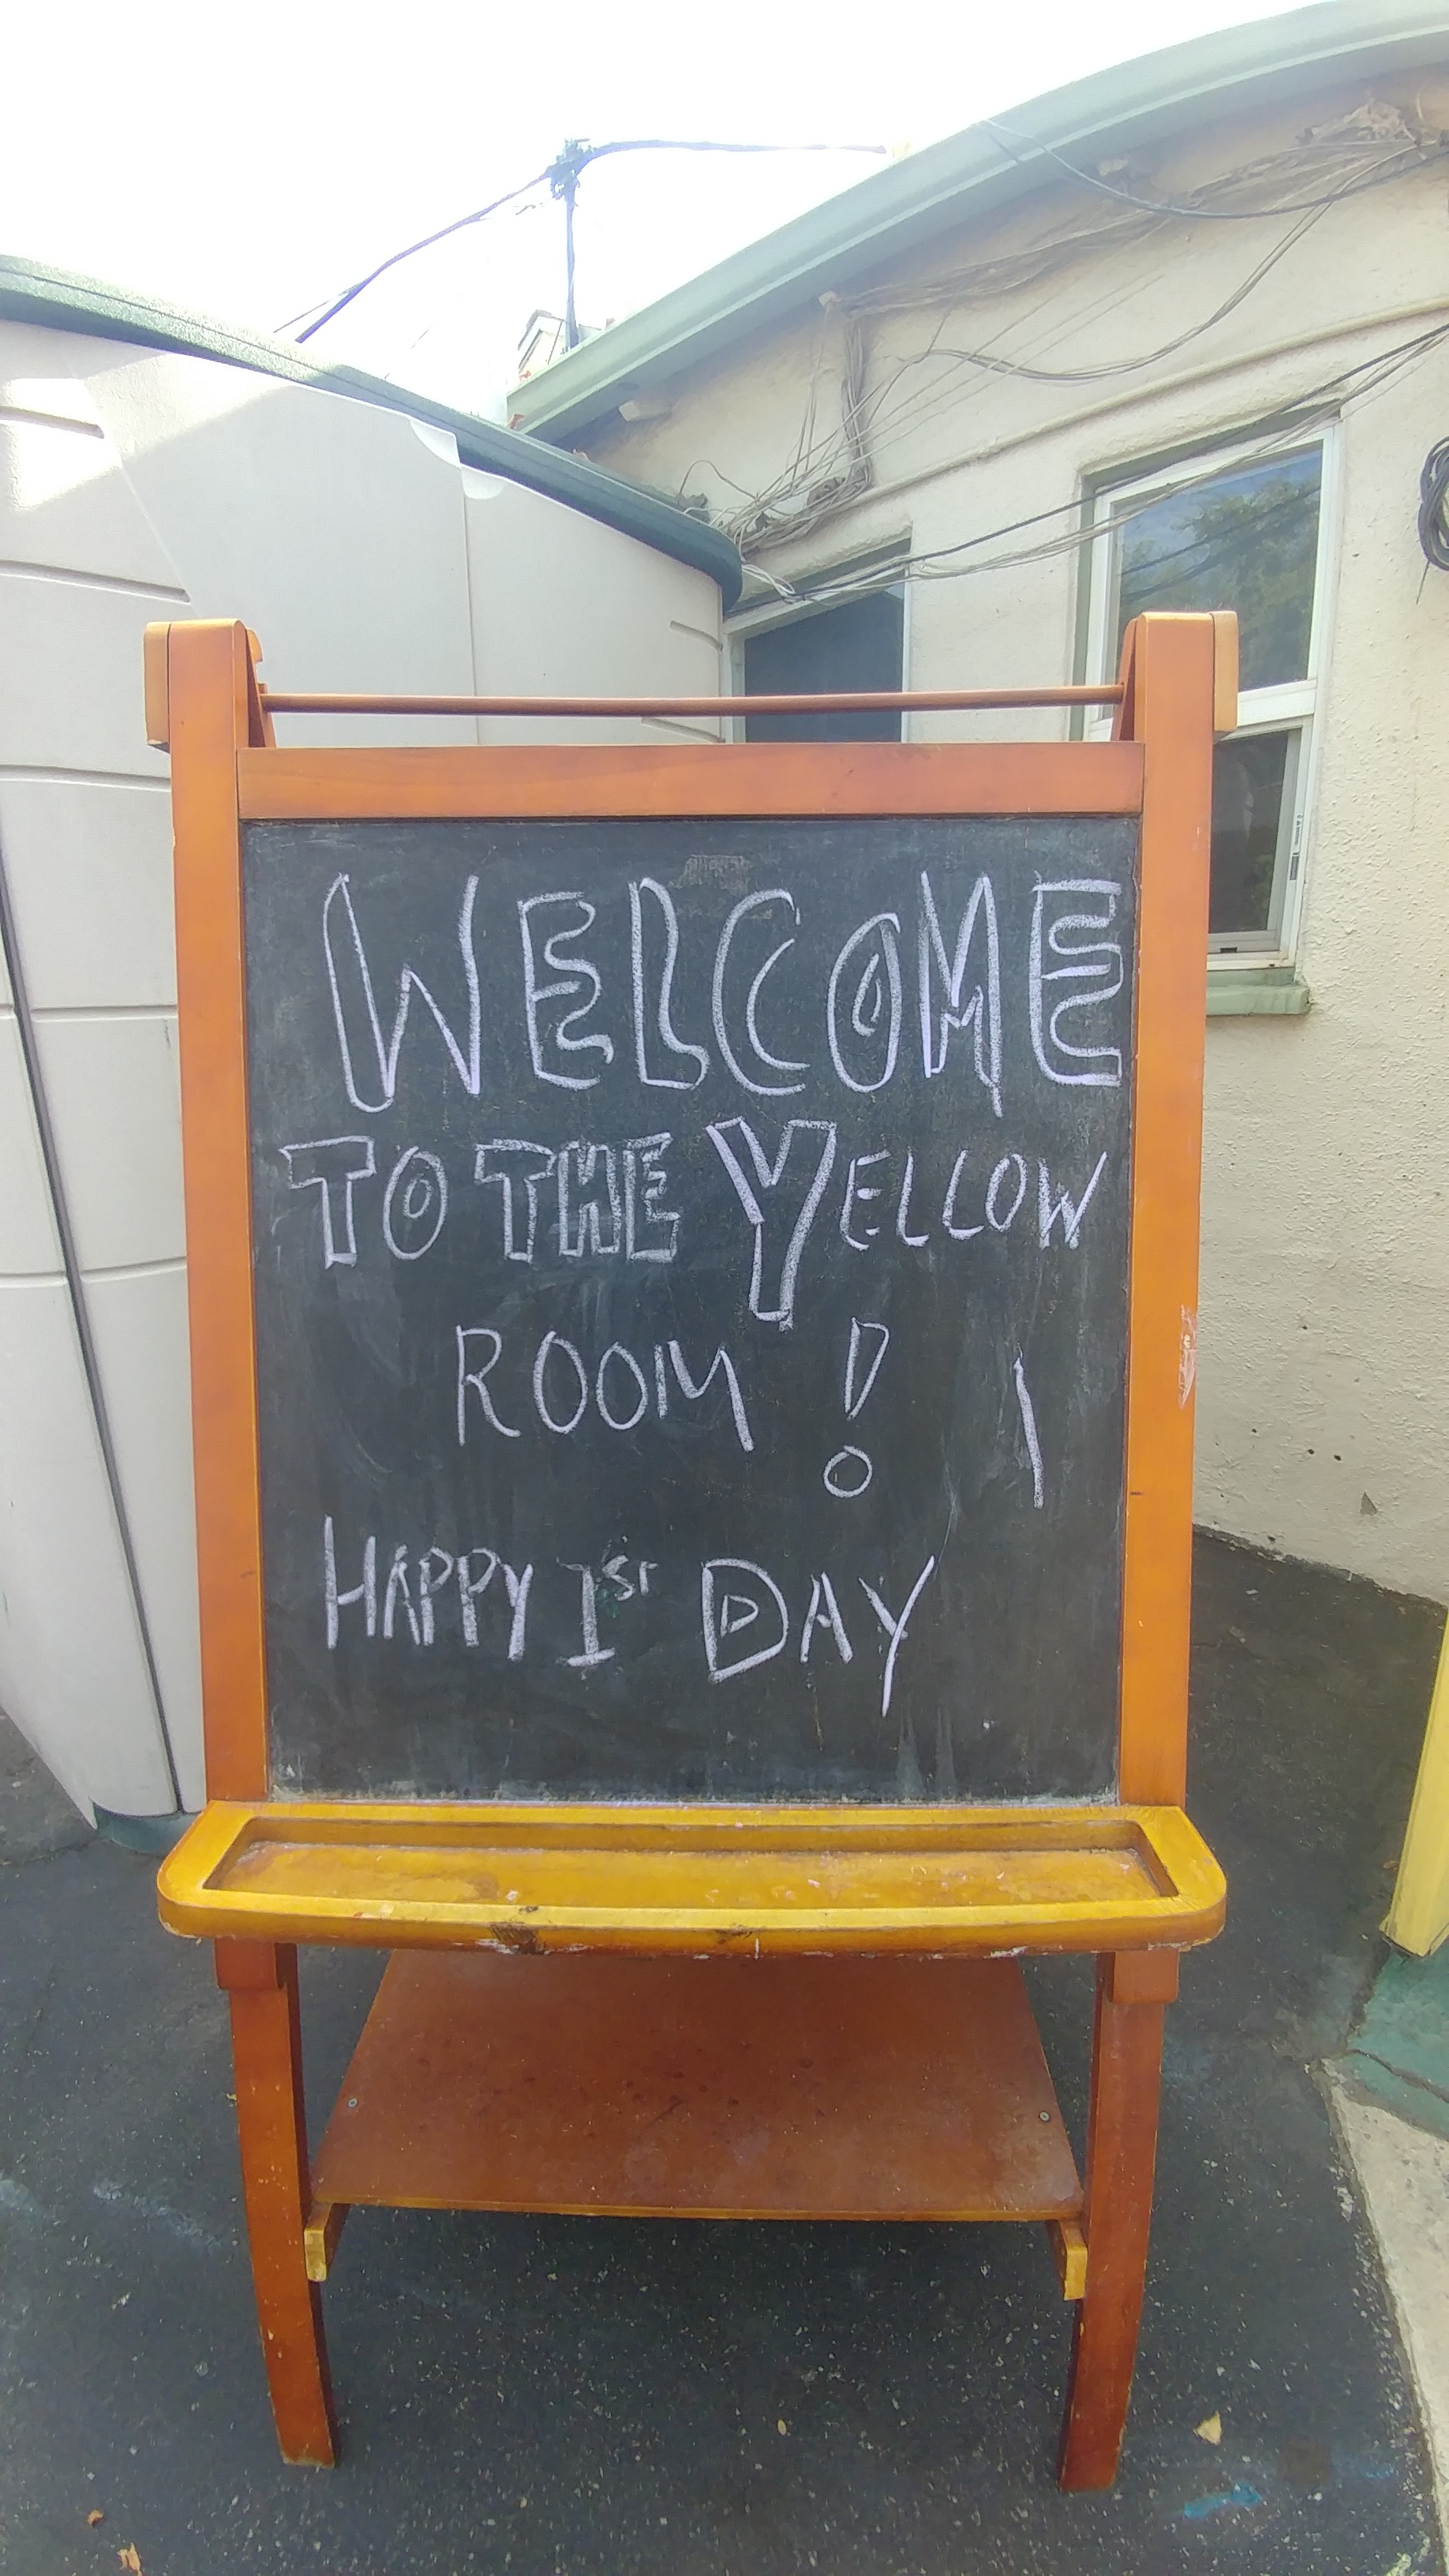 WELCOME
TO THE YELLOW
ROOM!
HAPPY 1ST DAY